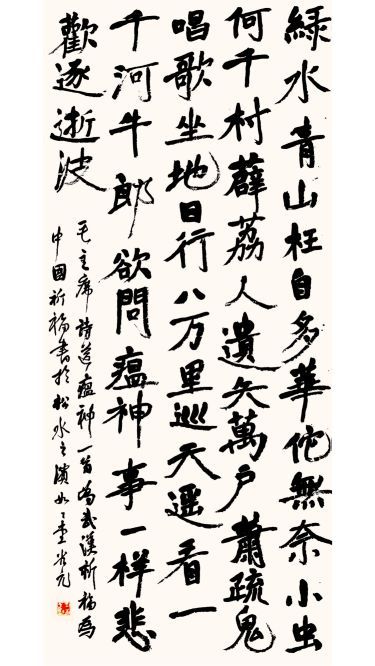 綠水青山枉自多華佗無奈小虫
何千村薜荔人遺矢萬戶蕭疏鬼
唱歌坐地日行八万里巡天遥看一
千河牛郎欲問瘟神事一样悲
歡逐逝波
毛主席詩送瘟神一首為武漢祈福為
中國祈福書於松水之濱